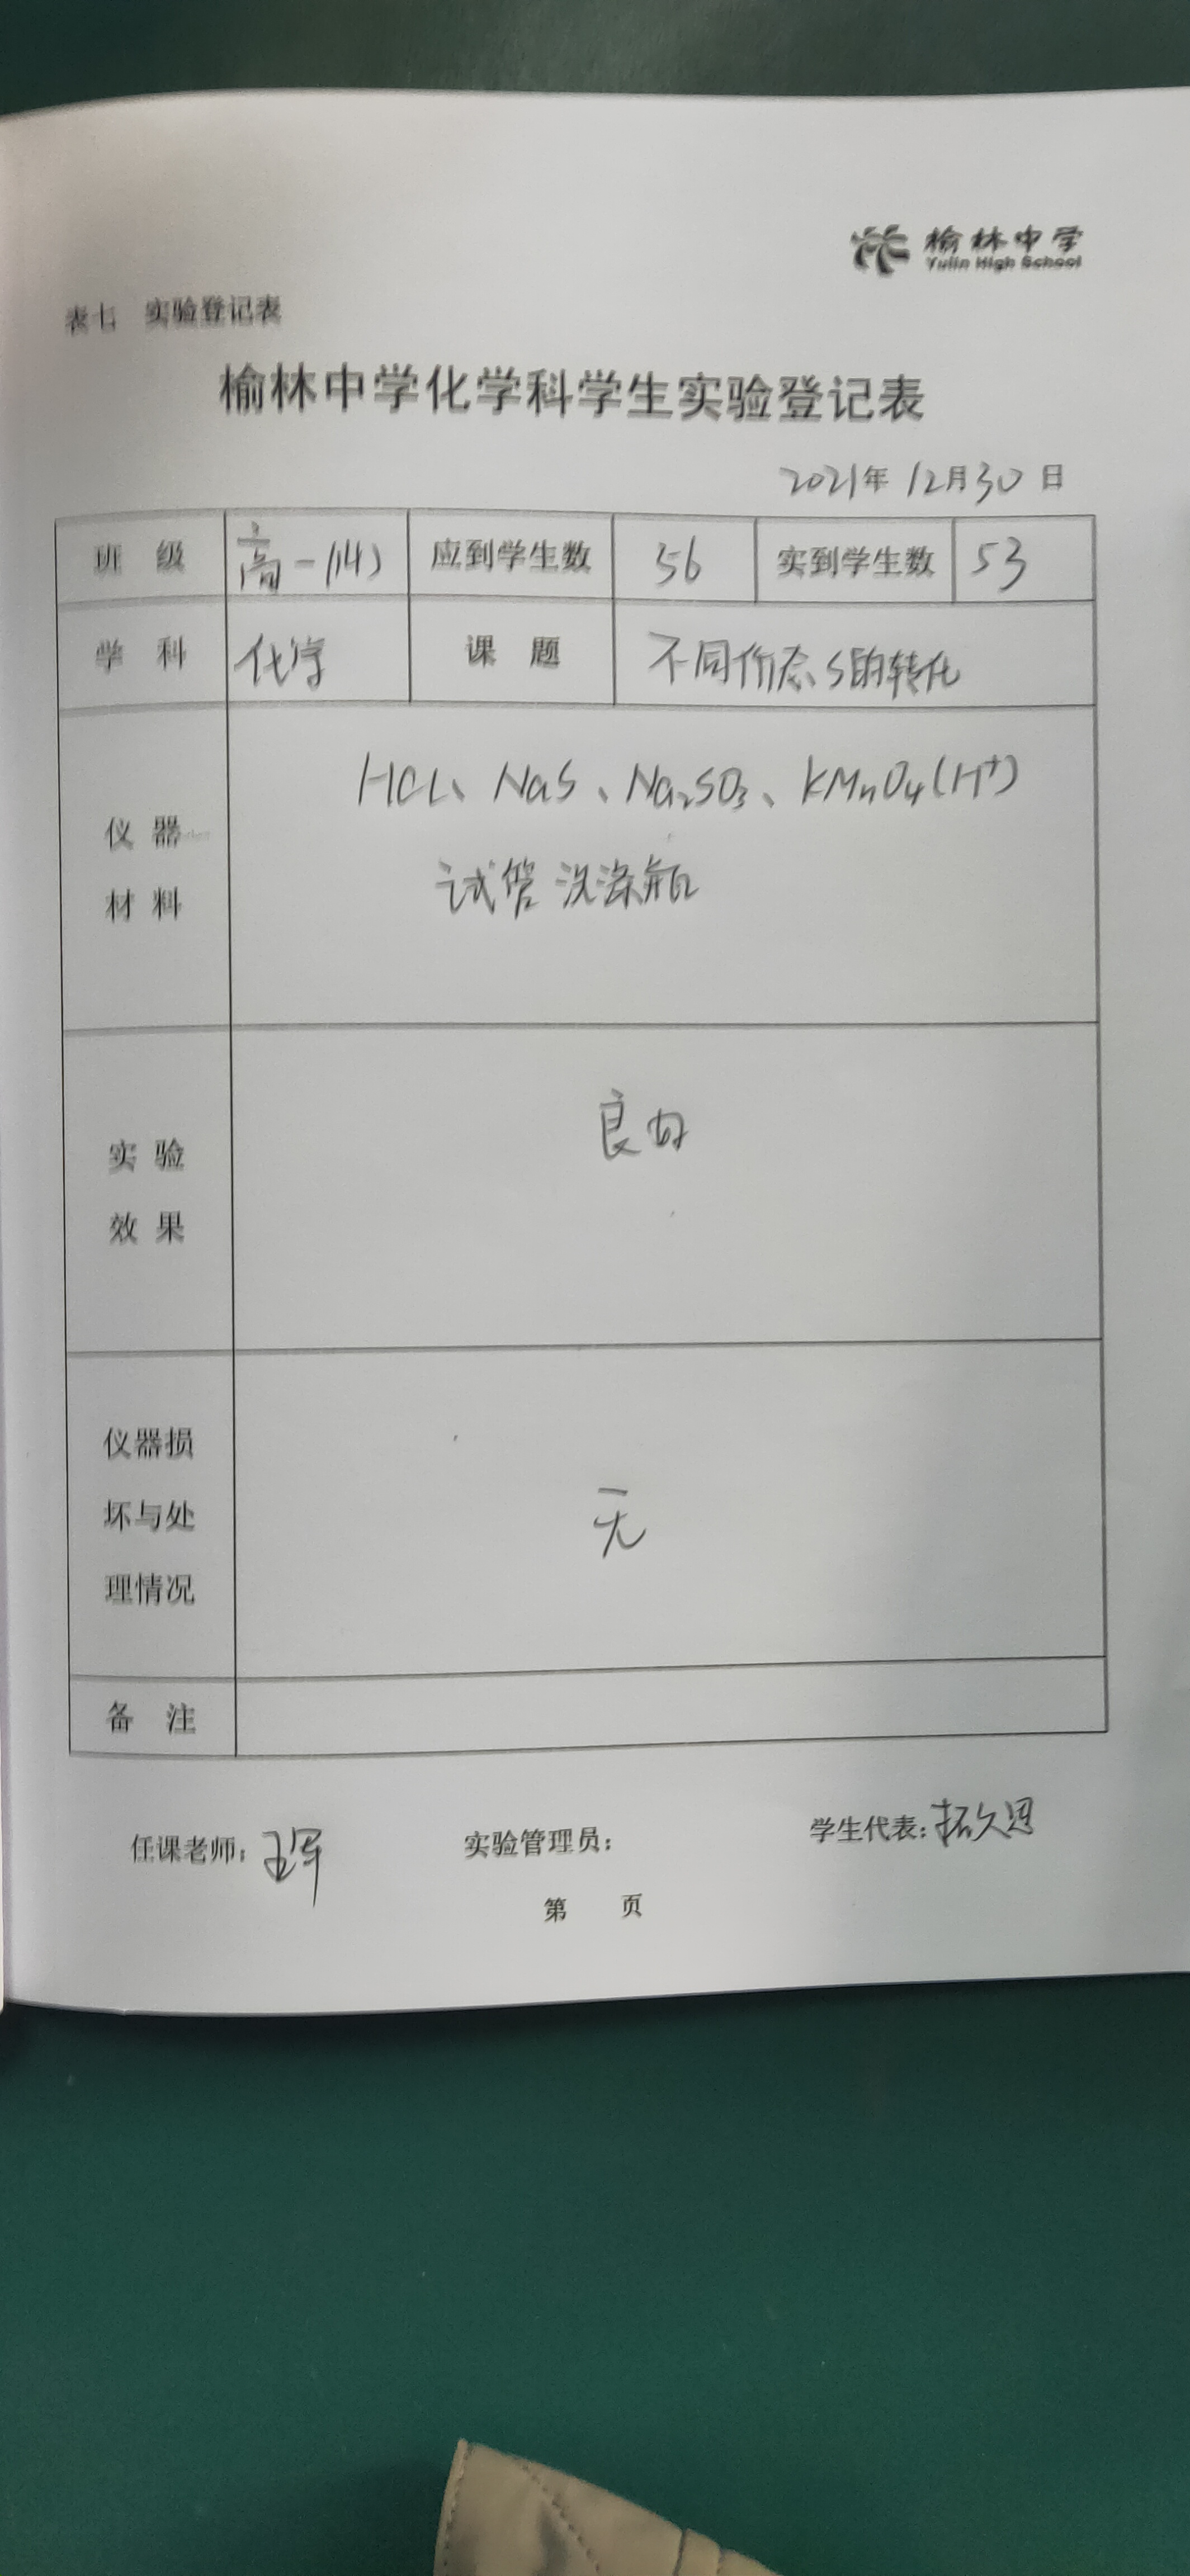 榆林中学
Yulin High School
表七 实验登记表
榆林中学化学科学生实验登记表
2021年12月30日
班 级 高一(14) 应到学生数 56 实到学生数 53
学 科 化学 课 题 不同价态S的转化
仪 器
材 料
HCl、NaS、Na₂SO₃、KMnO₄(H⁺)
试管 洗涤瓶
实 验
效 果
良好
仪器损
坏与处
理情况
无
备 注
任课老师: 实验管理员: 学生代表:拓久恩
第 页